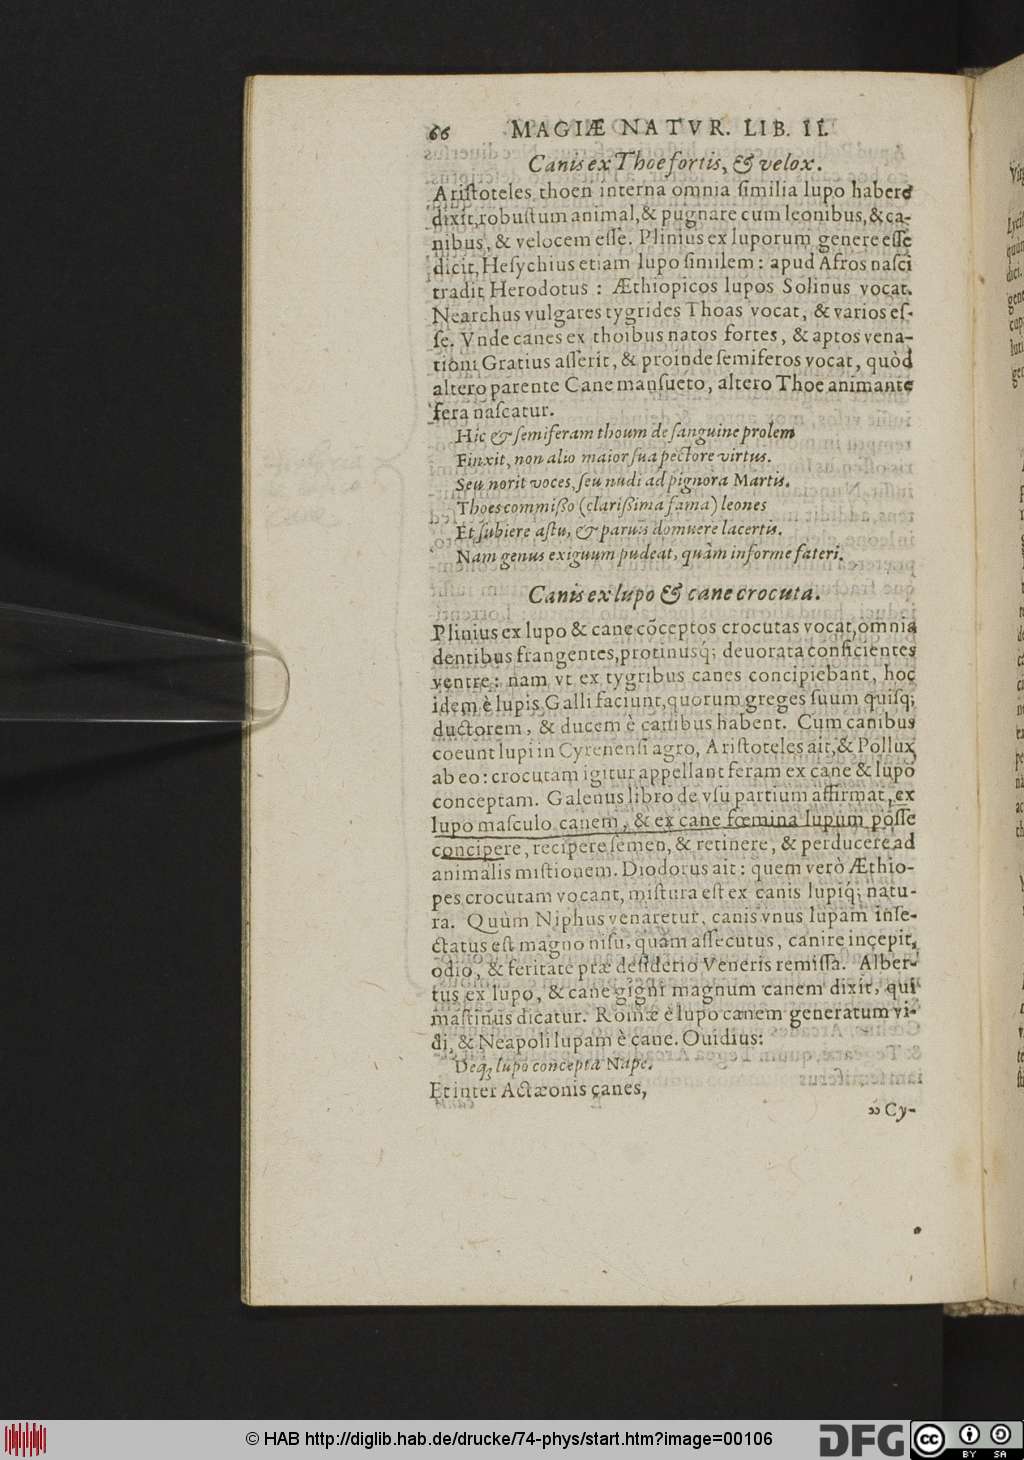 66 MAGIÆ NATVR. LIB. II.
Canis ex Thoe fortis, & velox.
Aristoteles thoen interna omnia similia lupo habere
dixit, robustum animal, & pugnare cum leonibus, & ca-
nibus, & velocem esse. Plinius ex luporum genere esse
dicit, Hesychius etiam lupo similem: apud Afros nasci
tradit Herodotus: Æthiopicos lupos Solinus vocat.
Nearchus vulgares tygrides Thoas vocat, & varios es-
se. Vnde canes ex thoibus natos fortes, & aptos vena-
tioni Gratius asserit, & proinde semiferos vocat, quòd
altero parente Cane mansueto, altero Thoe animante
fera nascatur.
Hic & semiferam thoum de sanguine prolem
Finxit, non alio maior sua pectore virtus.
Seu norit voces, seu nudi ad pignora Martis.
Thoes commißo (clarißima fama) leones
Et subiere astu, & paruis domuere lacertis.
Nam genus exiguum pudeat, quàm informe fateri.
Canis ex lupo & cane crocuta.
Plinius ex lupo & cane cõceptos crocutas vocat, omnia
dentibus frangentes, protinusq; deuorata conficientes
ventre: nam vt ex tygribus canes concipiebant, hoc
idem è lupis Galli faciunt, quorum greges suum quisq;
ductorem, & ducem è canibus habent. Cum canibus
coeunt lupi in Cyrenensi agro, Aristoteles ait, & Pollux
ab eo: crocutam igitur appellant feram ex cane & lupo
conceptam. Galenus libro de vsu partium affirmat, ex
lupo masculo canem, & ex cane fœmina lupum posse
concipere, recipere semen, & retinere, & perducere ad
animalis mistionem. Diodorus ait: quem verò Æthio-
pes crocutam vocant, mistura est ex canis lupiq́; natu-
ra. Quùm Niphus venaretur, canis vnus lupam inse-
ctatus est magno nisu, quàm assecutus, canire incepit,
odio, & feritate præ desiderio Veneris remissa. Alber-
tus ex lupo, & cane gigni magnum canem dixit, qui
mastinus dicatur. Romæ è lupo canem generatum vi-
di, & Neapoli lupam è cane. Ouidius:
Deq; lupo concepta Nape.
Et inter Actæonis canes,
„ Cy-
© HAB http://diglib.hab.de/drucke/74-phys/start.htm?image=00106
DFG
cc BY SA